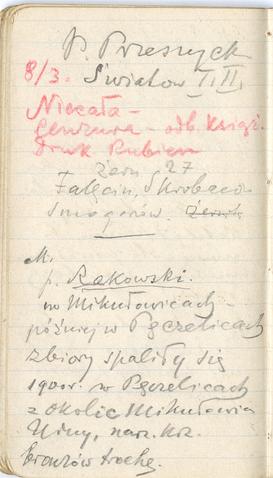 P. Przesmyck
8/3. Światow I. II.
Niecała –
Cenzura – odb. książ.
druk Rubien
Żern 27
Falęcin, Skrobaców
Smogorów. Żernik
M.
p. Rakowski.
w Mikułowicach –
później w Pęczelicach
zbiory spaliły się
1900 r. w Pęczelicach
z okolic Mikułowic
Urny, narz. krz.
bronzów trochę.